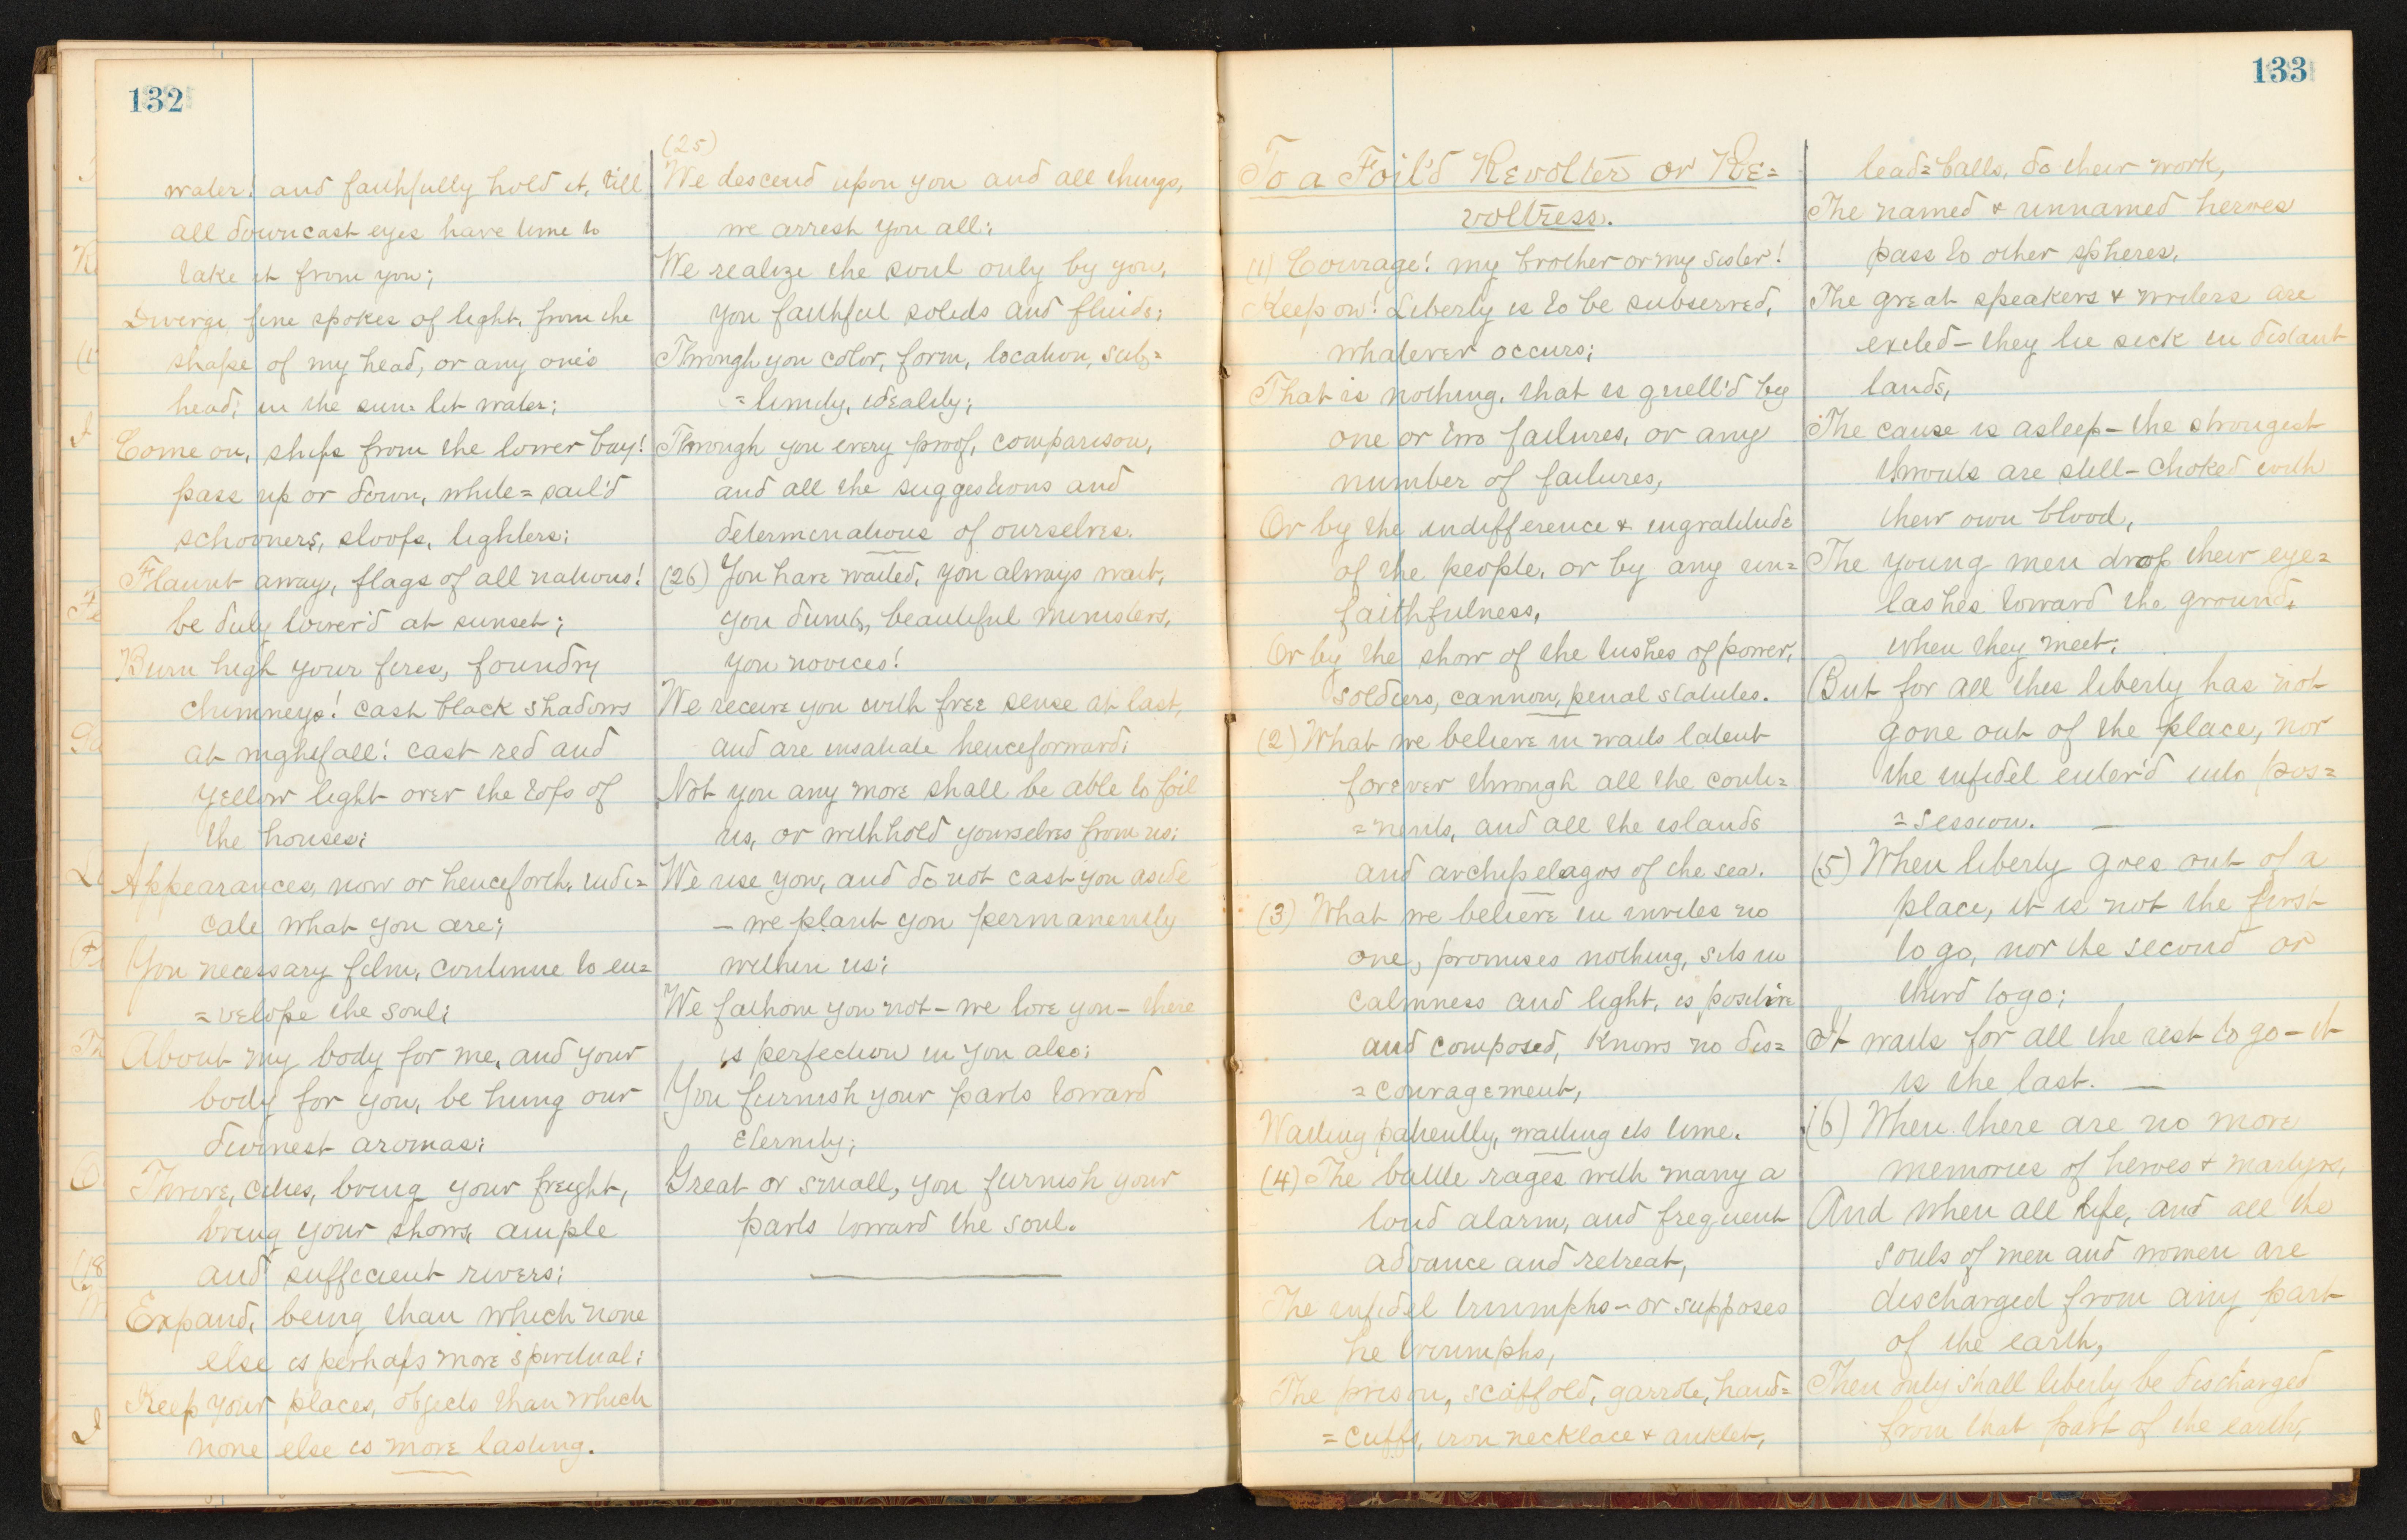 132
water! and faithfully hold it, till
all downcast eyes have time to
take it from you;
Diverge, fine spokes of light, from the
shape of my head, or any one's
head, in the sun=lit water;
Come on, ships from the lower bay!
pass up or down, white=sail'd
schooners, sloops, lighters;
Flaunt away, flags of all nations!
be duly lower'd at sunset;
Burn high your fires, foundry
chimneys! cast black shadows
at nightfall! cast red and
yellow light over the tops of
the houses;
Appearances, now or henceforth, indi=
cate what you are;
You necessary film, continue to en=
=velope the soul;
About my body for me, and your
body for you, be hung our
divinest aromas;
Thrive, cities, bring your freight,
bring your shows, ample
and sufficient rivers;
Expand, being than which none
else is perhaps more spiritual;
Keep your places, objects than which
none else is more lasting.
(25)
We descend upon you and all things,
we arrest you all;
We realize the soul only by you,
you faithful solids and fluids;
Through you color, form, location, sub=
=limity, ideality;
Through you every proof, comparison,
and all the suggestions and
determinations of ourselves.
(26) You have waited, you always wait,
you dumb, beautiful ministers,
you novices!
We receive you with free sense at last,
and are insatiate henceforward;
Not you any more shall be able to foil
us, or withhold yourselves from us;
We use you, and do not cast you aside
- we plant you permanently
within us;
We fathom you not - we love you - there
is perfection in you also;
You furnish your parts toward
eternity;
Great or small, you furnish your
parts toward the soul.
133
To a Foil'd Revolter or Re=
voltress.
(1) Courage! my brother or my sister!
Keep on! Liberty is to be subserved,
whatever occurs;
That is nothing, that is quell'd by
one or two failures, or any
number of failures,
Or by the indifference & ingratitude
of the people, or by any un=
faithfulness,
Or by the show of the tushes of power,
soldiers, cannon, penal statutes.
(2) What we believe in waits latent
forever through all the conti=
=nents, and all the islands
and archipelagos of the sea.
(3) What we believe in invites no
one, promises nothing, sits in
calmness and light, is positive
and composed, knows no dis=
=couragement,
Waiting patiently, waiting its time.
(4) The battle rages with many a
loud alarm, and frequent
advance and retreat,
The infidel triumphs - or supposes
he triumphs,
The prison, scaffold, garrote, hand=
=cuffs, iron necklace & anklet,
lead=balls, do their work,
The named & unnamed heroes
pass to other spheres,
The great speakers & writers are
exiled - they lie sick in distant
lands,
The cause is asleep - the strongest
throats are still - choked with
their own blood,
The young men drop their eye=
lashes toward the ground,
when they meet;
But for all this liberty has not
gone out of the place, nor
the infidel enter'd into pos=
=session. —
(5) When liberty goes out of a
place, it is not the first
to go, nor the second or
third to go;
It waits for all the rest to go - it
is the last. —
(6) When there are no more
memories of heroes & martyrs,
And when all life, and all the
souls of men and women are
discharged from any part
of the earth,
Then only shall liberty be discharged
from that part of the earth,